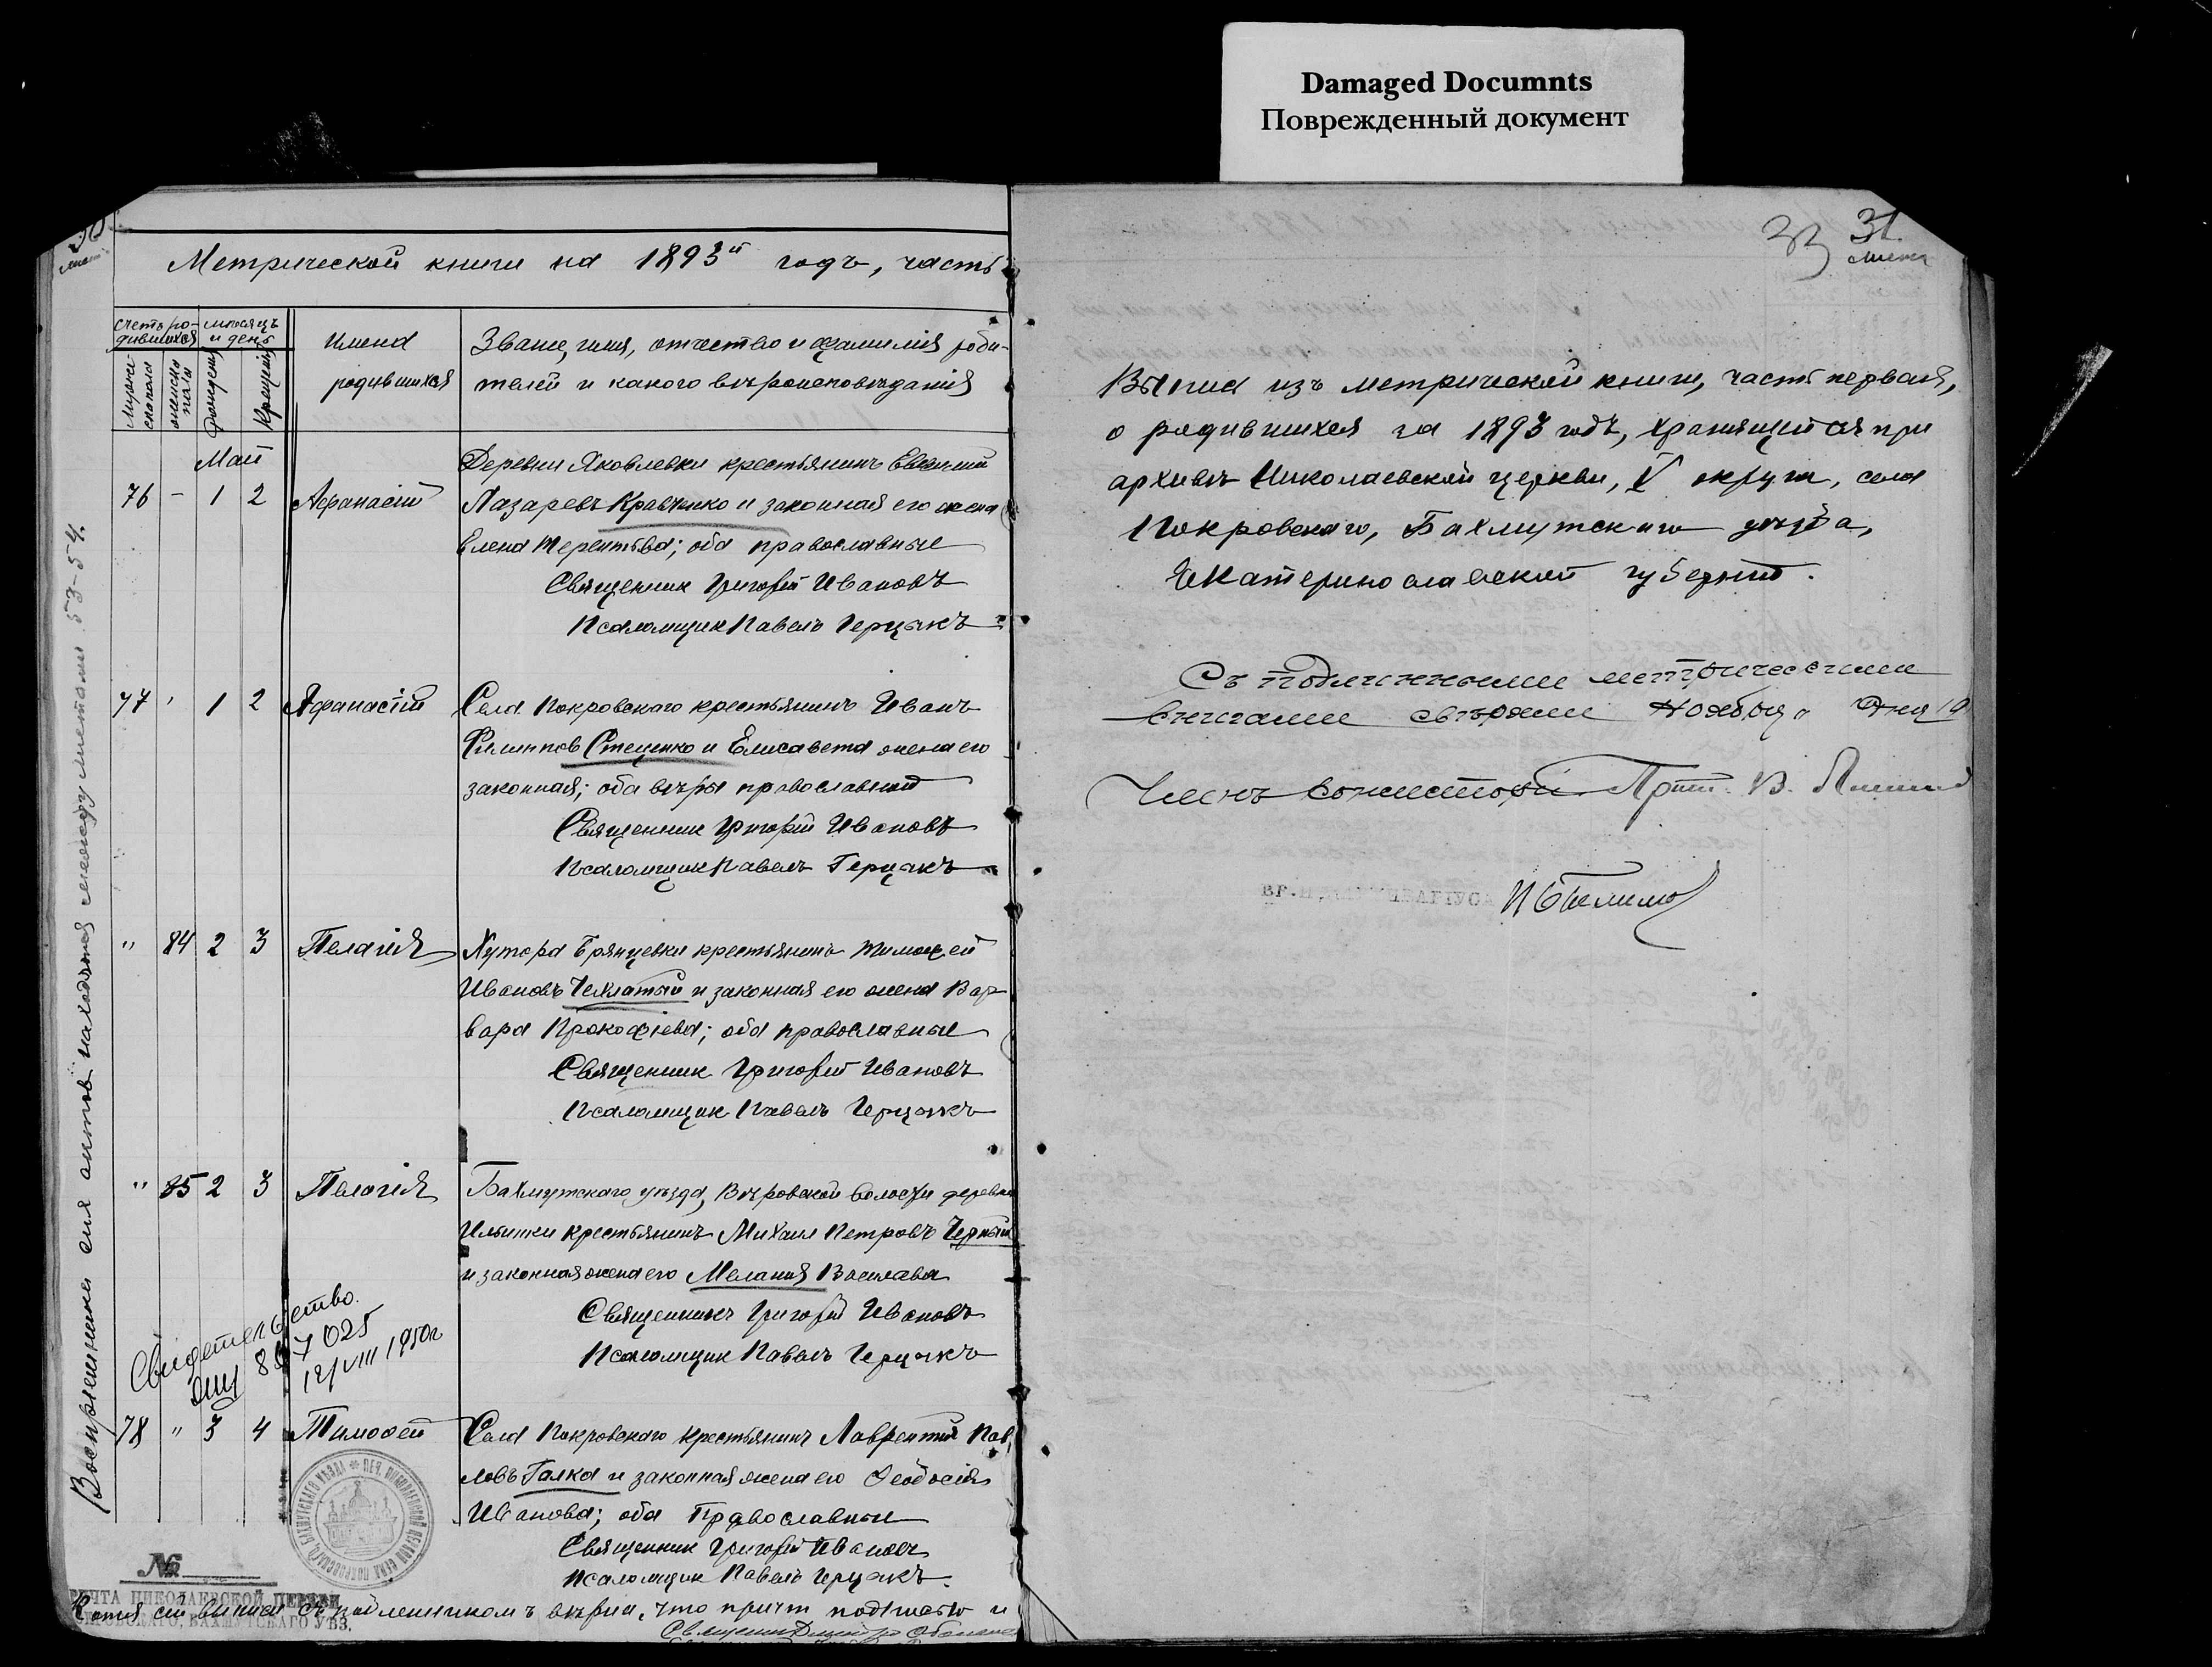 Damaged Documnts
Поврежденный документ
Метрической книги на 1893й годъ, часть
счетъ ро-
дившихся
мѣсяцъ
и день
мужеска пола
женска пола
рожденія
крещенія
Имена
родившихся
Званіе, имя, отчество и фамилія роди-
телей и какого вѣроисповѣданія
Май
Деревни Яковлевки крестьянинъ Евгений
76 - 1 2 Афанасій Лазаревъ Кравченко и законная его жена
Елена Терентьева; оба православные
Священник Григорій Ивановъ
Псаломщик Павелъ Герцыкъ
77 " 1 2 Афанасій Села Покровского крестьянинъ Иванъ
Филиппов Стеценко и Елисавета жена его
законная; оба вѣры православной
Священник Григорій Ивановъ
Псаломщик Павелъ Герцыкъ
" 84 2 3 Пелагія Хутора Брянцевки крестьянинъ Тимофей
Ивановъ Чехлатый и законная его жена Вар-
вара Прокофіева; оба православные
Священник Григорій Ивановъ
Псаломщик Павелъ Герцыкъ
" 85 2 3 Пелагія Бахмутскаго уѣзда, Вѣровской волости деревни
Ильинки крестьянинъ Михаил Петровъ Черный
и законная жена его Мелания Васильева
Священникъ Григорій Ивановъ
Псаломщик Павелъ Герцыкъ
Свидетельство
025
12/VIII 1950г
78 " 3 4 Тимофей Села Покровского крестьянинъ Лаврентий Пав-
ловъ Галка и законная жена его Феодосія
Иванова; оба Православные
Священник Григорій Ивановъ
Псаломщик Павелъ Герцыкъ.
№
ПРИЧТА НИКОЛАЕВСКОЙ ЦЕРКВИ
ПОКРОВСКАГО, БАХМУТСКАГО УѢЗ.
Копія сей выписи съ подленникомъ вѣрна, что причт подписью и
Воспреемники сих актов находятся между листами 53-54.
33 31
листъ
Выпись изъ метрической книги, часть первая,
о родившихся за 1893 годъ, хранящейся при
архивѣ Николаевской церкви, V округа, села
Покровского, Бахмутского уѣзда,
Екатеринославской губерніи.
Съ подлинными метрическими
книгами свѣряли Ноября Дня 19
Членъ Консисторіи Прот. В.